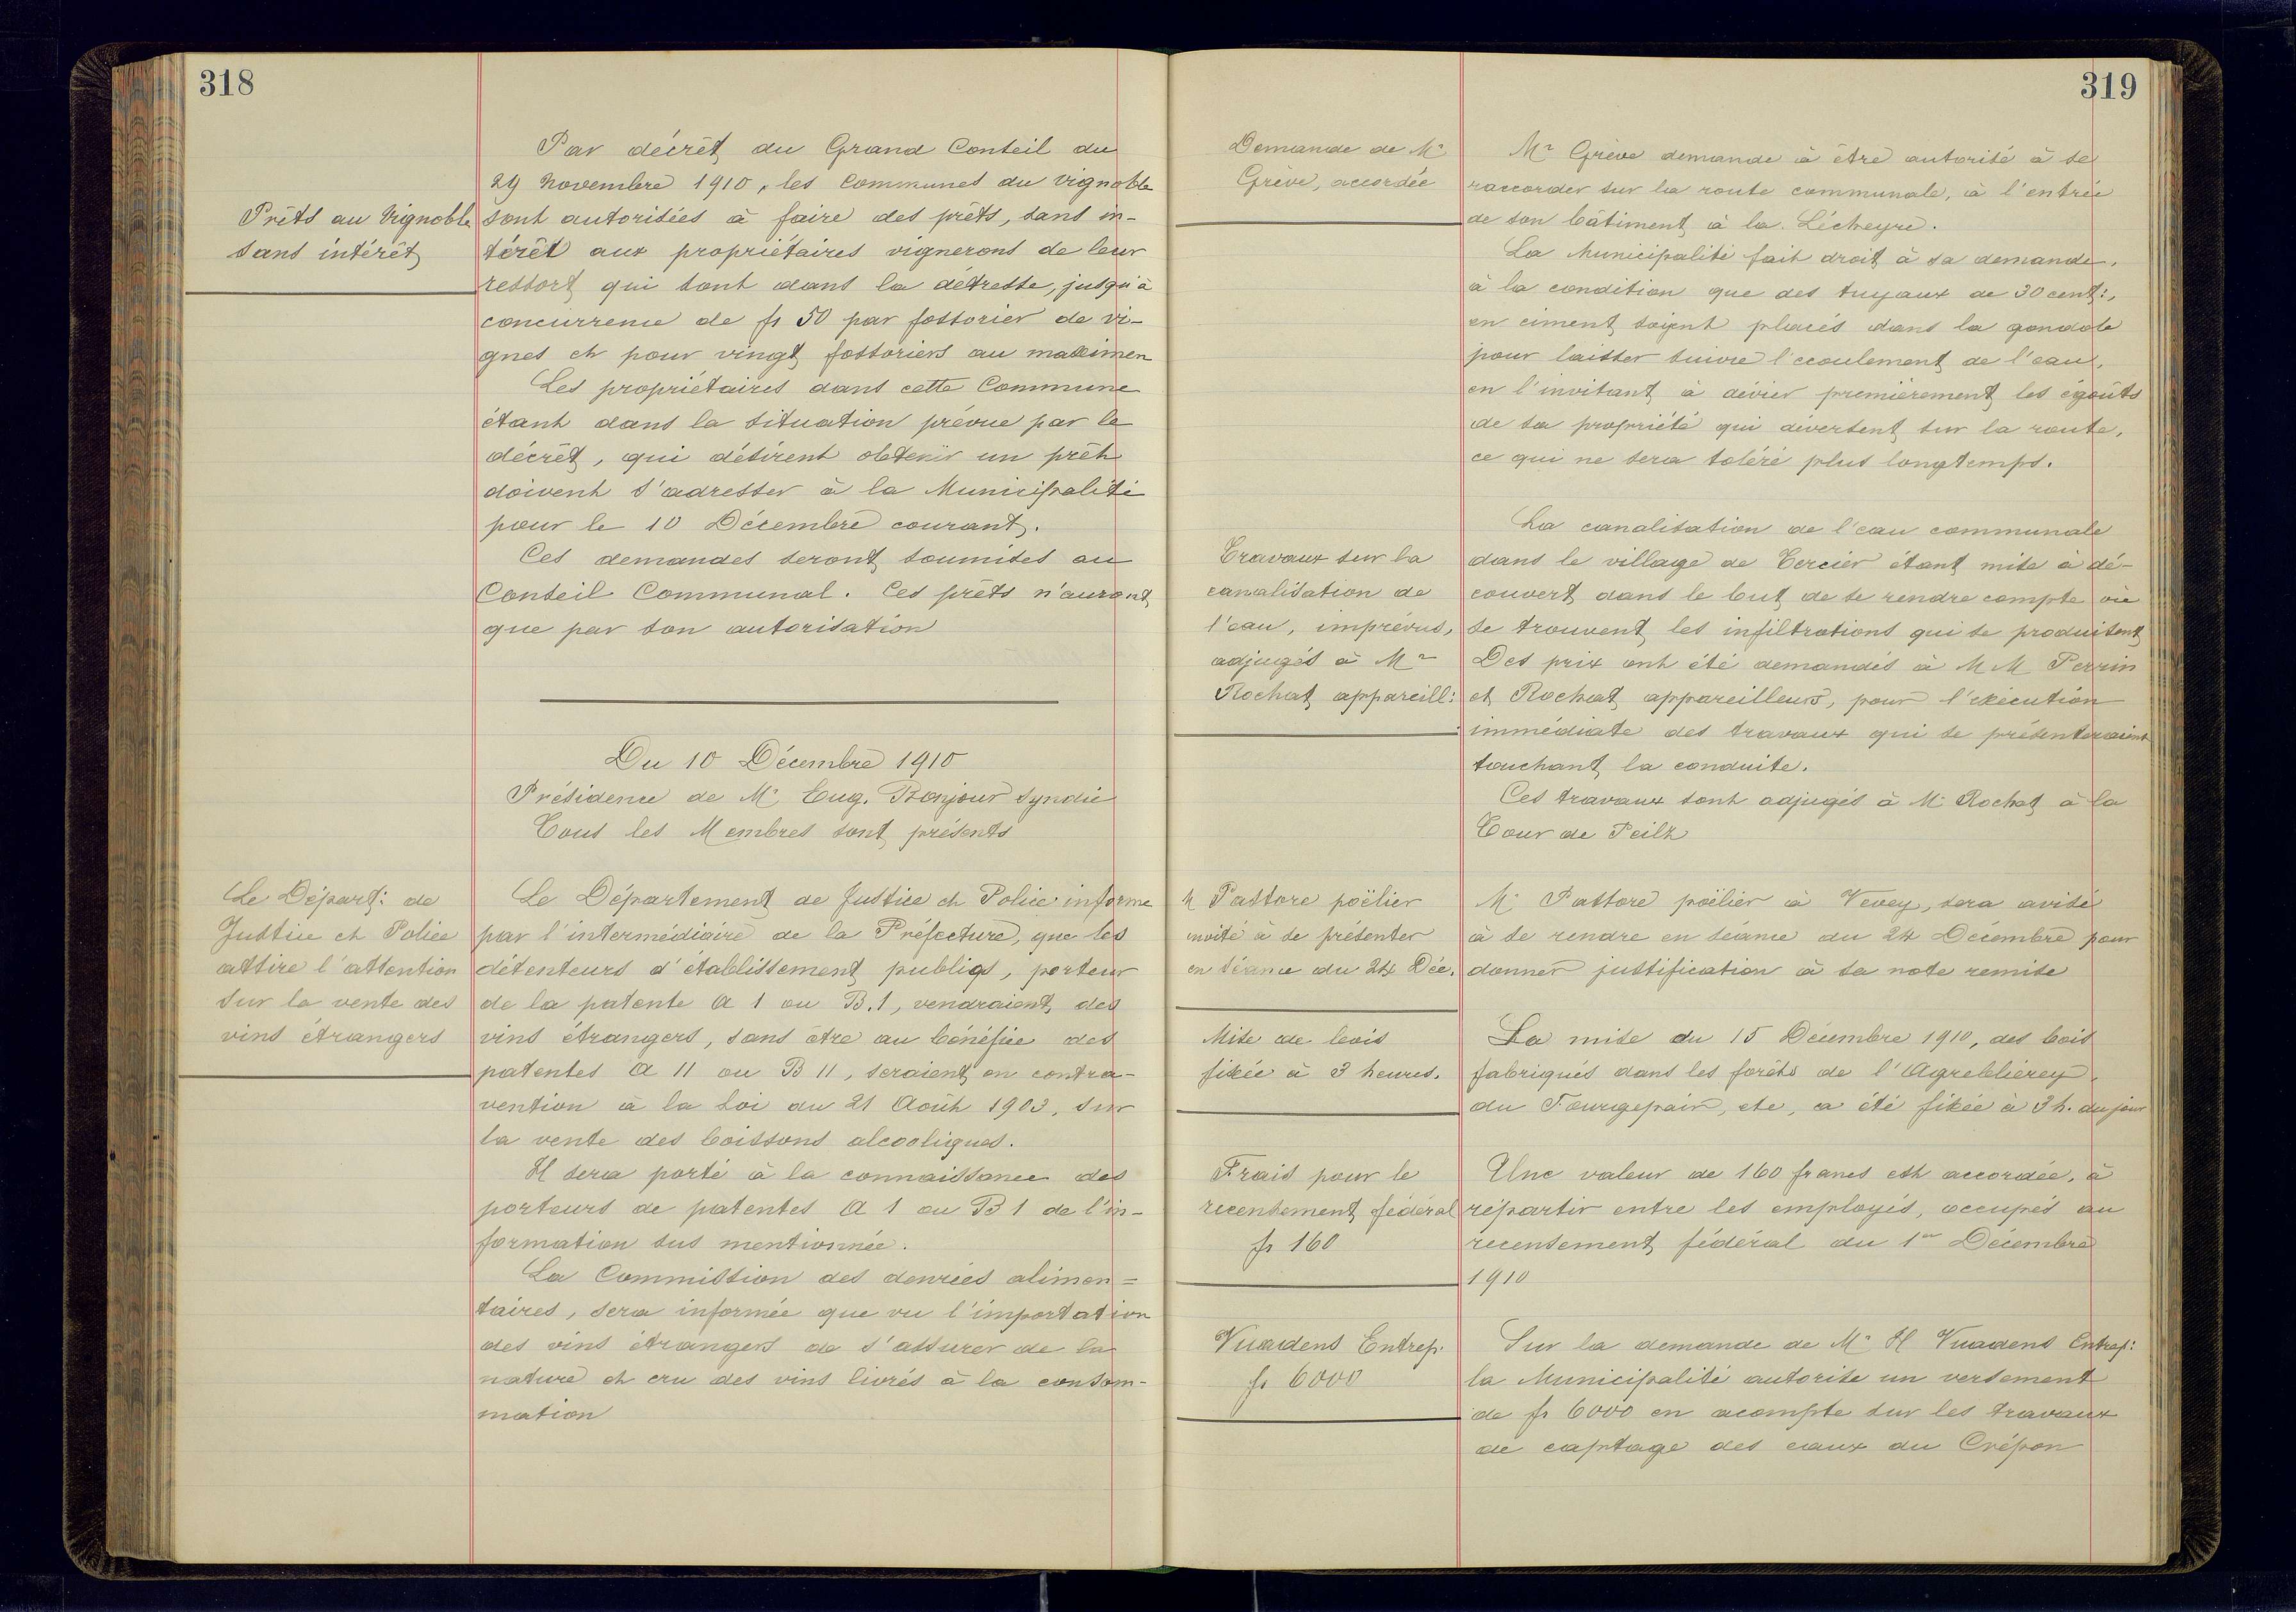 318
Par décrêt du Grand Conseil du
29 Novembre 1910, les Communes du vignoble
Prêts au Vignoble
sans intérêt
sont autorisées à faire des prêts, sans in-
térêt aux propriétaires vignerons de leur
ressort qui sont dans la détresse, jusqu'à
concurrence de fr 50 par fossorier de vi-
gnes et pour vingt fossoriers au maximen
Les propriétaires dans cette Commune
étant dans la situation prévue par le
décrêt, qui désirent obtenir un prêt
doivent s'adresser à la Municipalité
pour le 10 Décembre courant.
Ces demandes seront soumises au
Conseil Communal. Ces prêts n'auront
que par son autorisation
Du 10 Décembre 1910
Présidence de Mr Eug. Bonjour Syndic
Tous les Membres sont présents
Le Départ: de
Justice et Police
attire l'attention
sur la vente des
vins étrangers
Le Département de Justice et Police informe
par l'intermédiaire de la Préfecture, que les
détenteurs d'établissement publiqs, porteur
de la patente A 1 ou B.1, vendraient des
vins étrangers, sans être au bénéfice des
patentes A 11 ou B 11, seraient en contra-
vention à la Loi du 21 Août 1903, sur
la vente des boissons alcooliques.
Il sera porté à la connaissance des
porteurs de patentes A 1 ou B 1 de l'in-
formation sus mentionnée.
La Commission des denrées alimen=
taires, sera informée que vu l'importation
des vins étrangers de s'assurer de la
nature et cru des vins livrés à la consom-
mation
319
Demande de Mr
Grève, accordée
Mr Grève demande à être autorisé à se
raccorder sur la route communale, à l'entrée
de son bâtiment à la Lécheyre.
La Municipalité fait droit à sa demande,
à la condition que des tuyaux de 30 cent:,
en ciment soient placés dans la gondole
pour laisser suivre l'ecoulement de l'eau,
en l'invitant à dévier premièrement les égoûts
de sa propriété qui déversent sur la route,
ce qui ne sera toléré plus longtemps.
Travaux sur la
canalisation de
l'eau, imprévus,
adjugés à Mr
Rochat appareill:
La canalisation de l'eau communale
dans le village de Tercier étant mise à dé-
couvert dans le but de se rendre compte où
se trouvent les infiltrations qui se produisent
Des prix ont été demandés à M M Perrin
et Rochat appareilleurs, pour l'exécution
immédiate des travaux qui se présenteraient
touchant la conduite.
Ces travaux sont adjugés à Mr Rochat à la
Tour de Peilz
M Pastore poëlier
invité à se présenter
en séance du 24 Déc.
Mr Pastore poëlier à Vevey, sera avisé
à se rendre en séance du 24 Décembre pour
donner justification à sa note remise
Mise de bois
fixée à 3 heures.
La mise du 15 Décembre 1910, des bois
fabriqués dans les forêts de l'Agreblierey,
du Fourgepain, etc, a été fixée à 3 h. du jour
Frais pour le
recensement fédéral
fr 160
Une valeur de 160 francs est accordée, à
répartir entre les employés, occupés au
recensement fédéral du 1er Décembre
1910
Vuadens Entrep.
fr 6000
Sur la demande de Mr H Vuadens Entrep:
la Municipalité autorise un versement
de fr 6000 en acompte sur les travaux
de captage des eaux du Crépon